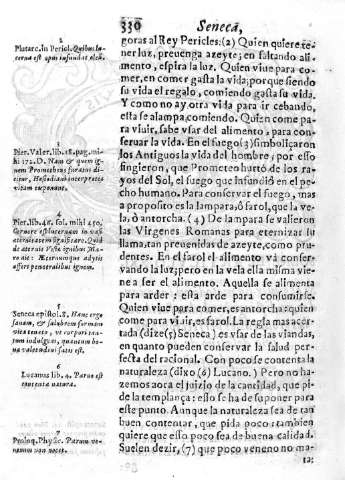 330
Seneca,
goras al Rey Pericles: (2) Quien quiere te-
ner luz, preuenga azeyte; en faltando ali-
mento, espira la luz. Quien viue para co-
mer, en comer gasta la vida; porque siendo
su vida el regalo, comiendo gasta su vida.
Y como no ay otra vida por ir cebando,
esta se a lampa, comiendo. Quien come pa-
ra viuir, sabe vsar del alimento, para con-
seruar la vida. En el fuego (3) simboliçaron
los Antiguos la vida del hombre; por esso
fingieron, que Prometeo hurtò de los ra-
yos del Sol, el fuego que infundiò en el pe-
cho humano. Para conseruar el fuego, mas
a proposito es la lampara, ò farol, que la ve-
la, ò antorcha. (4) De lampara se valieron
las Virgenes Romanas para eternizar su
llama, tan preuenidas de azeyte, como pru-
dentes. En el farol el alimento và conser-
vando la luz; pero en la vela ella misma vie-
ne a ser el alimento. Aquella se alimenta
para arder: esta arde para consumirse.
Quien viue para comer, es antorcha: quien
come para viuir, es farol. La regla mas acer-
tada (dize (5) Seneca) es vsar de las viandas,
en quanto pueden conseruar la salud per-
fecta del racional. Con poco se contenta la
naturaleza (dixo (6) Lucano.) Pero no ha-
zemos aora el juizio de la cantidad, que pi-
de la templança: esso se ha de suponer para
este punto. Aunque la naturaleza sea de tan
buen contentar, que pida poco; tambien
quiere que esso poco sea de buena calidad.
Suelen dezir, (7) que poco veneno no ma-
ta:
2
Plutarc. in Pericl. Quibus lu-
cerna est opus infundat oleũ.
3
Pier. Valer. lib. 18. pag. mi-
hi 172. D. Nam & quem ig-
nem Prometheus furatus di-
citur, Hesiodi interprete
vitam exponunt.
4
Pier. lib. 46. fol. mihi 450.
5
Seneca epistol. 8. Hanc ergo
sanam, & salubrem formam
vitæ tenete, vt corpori tan-
tum indulgeas, quantum bo-
næ valetudini satis est.
6
Lucanus lib. 4. Paruo est
contenta natura.
7
Parum ve-
nenum non nocet.